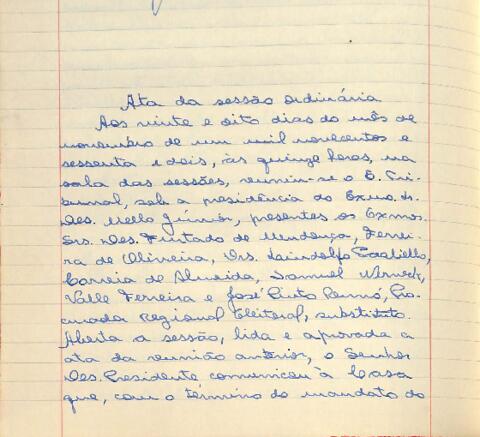 Ata da sessão ordinária
Aos vinte e oito dias do mês de
novembro de um mil novecentos e
sessenta e dois, às quinze horas, na
sala das sessões, reuniu-se o E. Tri-
bunal, sob a presidência do Exmo. Sr.
Des. Mello Júnior, presentes os Exmos.
Srs. Des. Furtado de Mendonça, Ferrei-
ra de Oliveira, Drs. Lindolfo
Correia de Almeida, Samuel Werneck,
Valle Ferreira e José Pinto Renó, Pro-
curador Regional Eleitoral, substituto.
Aberta a sessão, lida e aprovada a
ata da reunião anterior, o Senhor
Des. Presidente comunicou à Casa
que, com o término do mandato do